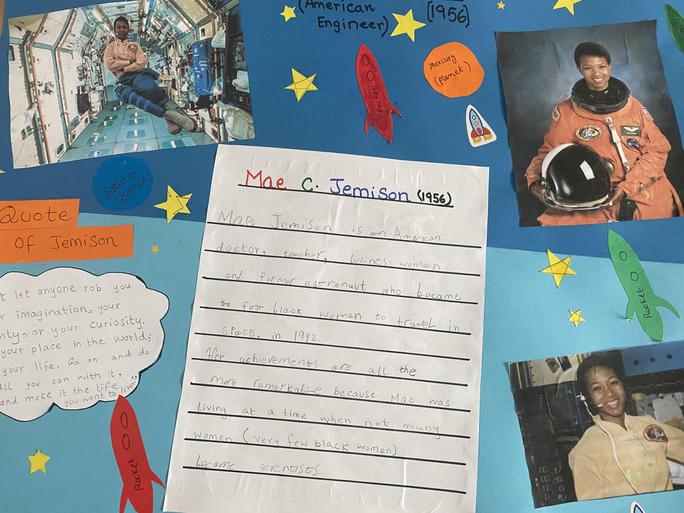 (American
Engineer)
(1956)
Mercury
(Planet)
Rocket
Saturn
(planet)
Quote
of Jemison
t let anyone rob you
r imagination, your
vity, or your curiosity.
your place in the world;
your life. Go on and do
all you can with it,
and make it the life
you want to live."
Rocket
Mae C. Jemison (1956)
Mae Jemison is an American
doctor, teacher, business woman
and former astronaut who became
the first black woman to travel in
space, in 1992.
Her achievements are all the
more remarkable because Mae was
living at a time when not many
women (very few black women)
became scientists.
Rocket